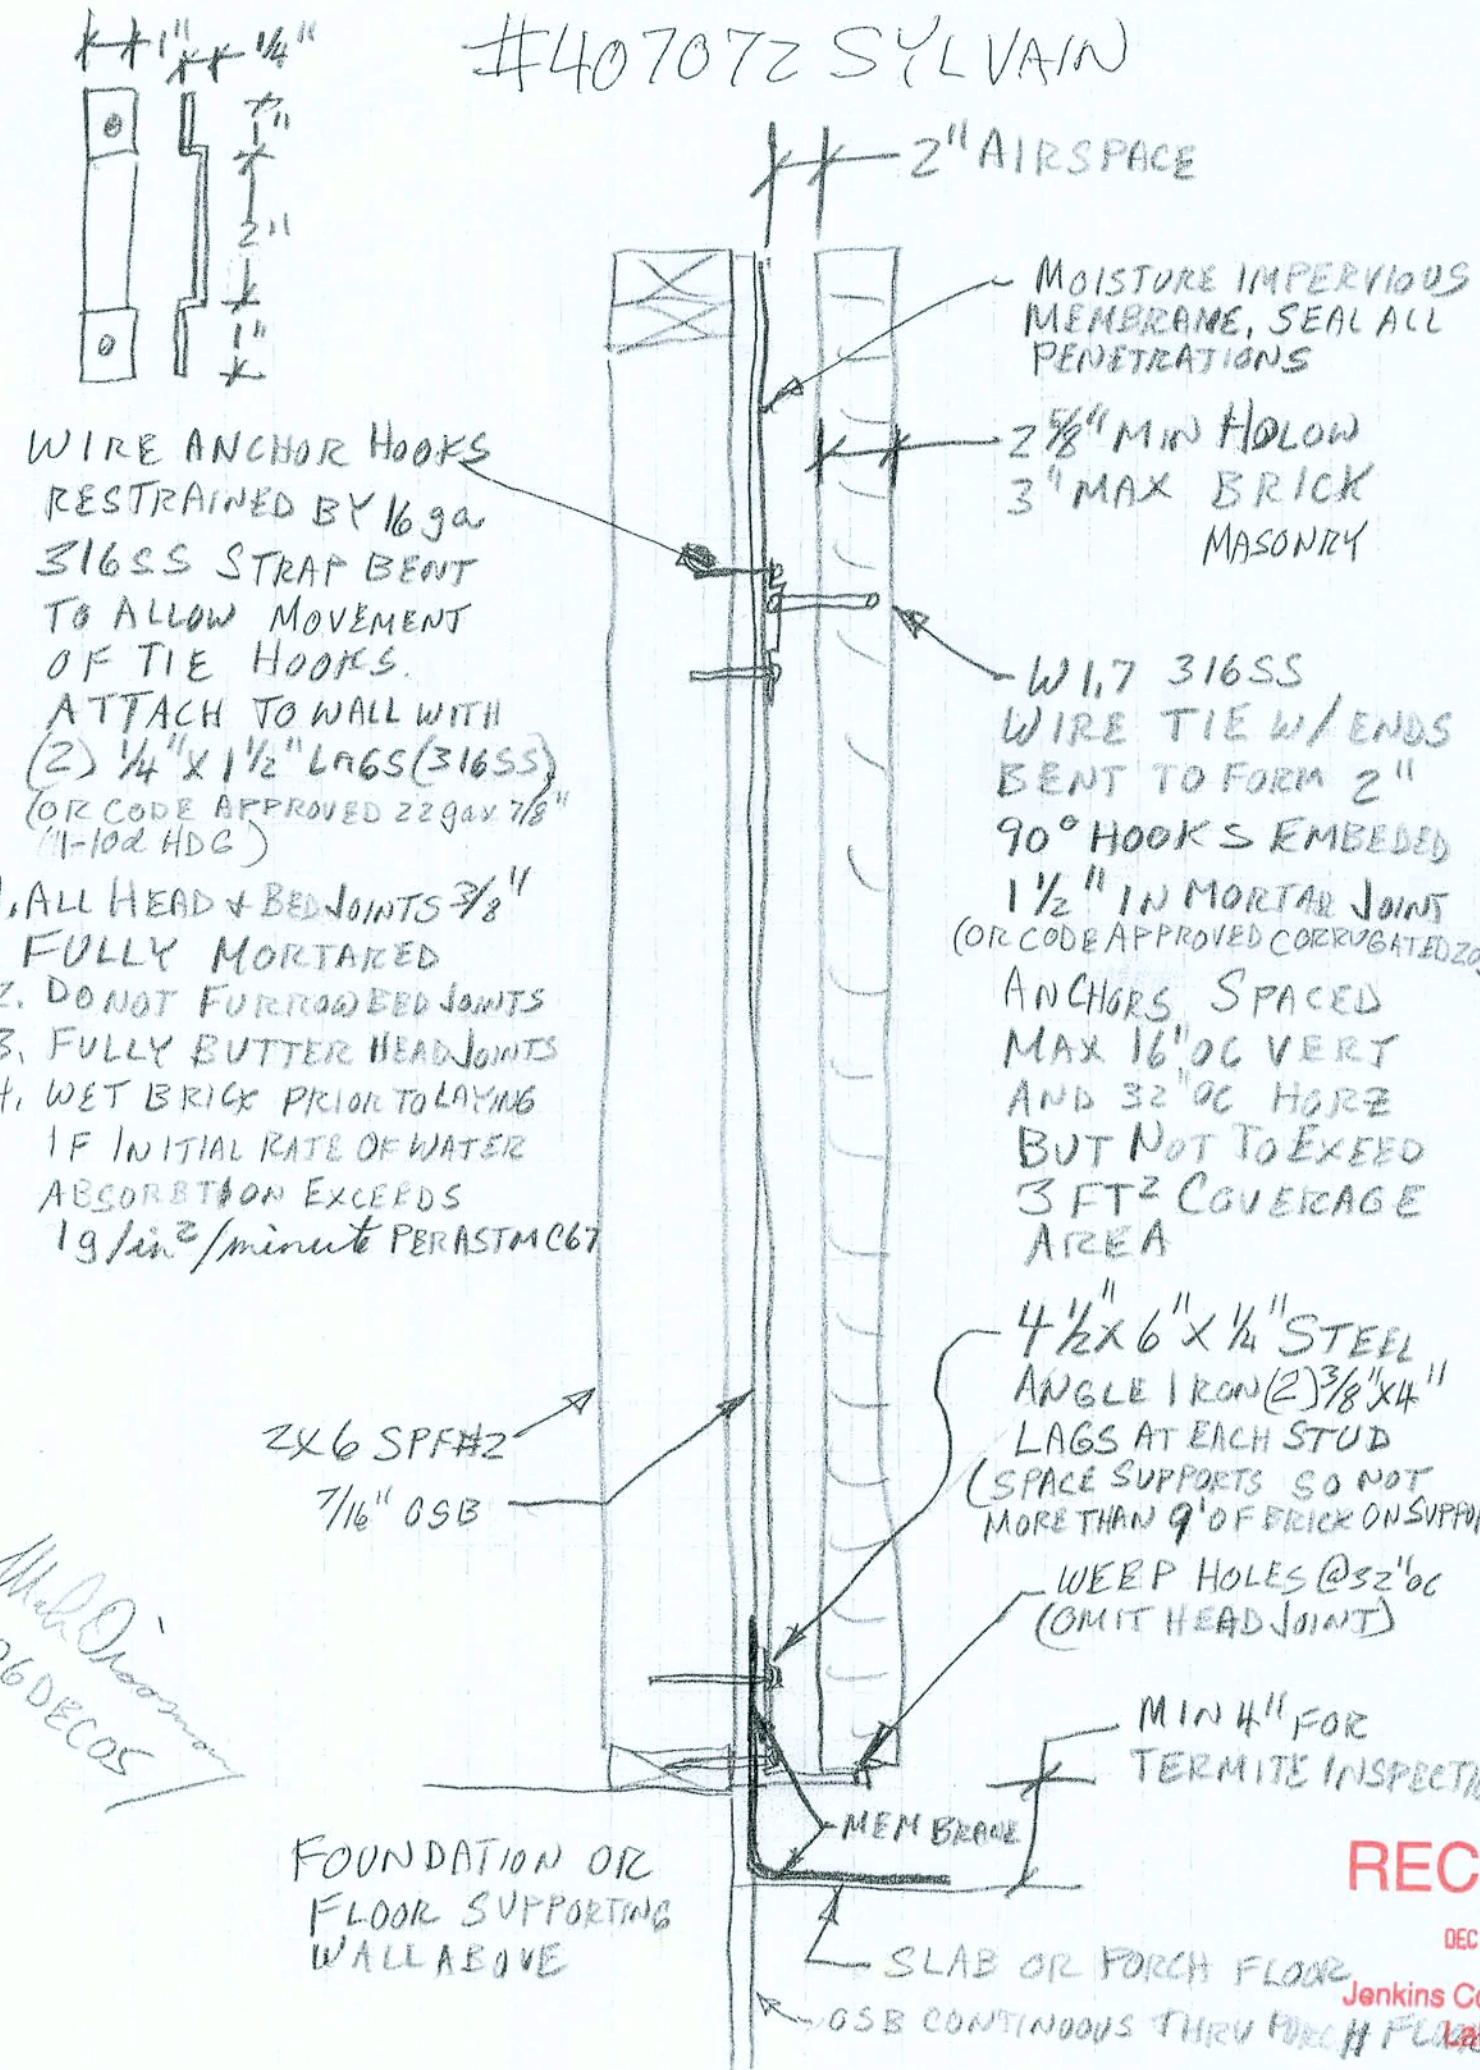 #407072 SYLVAIN
1" 1/4"
1"
2"
1"
2" AIRSPACE
MOISTURE IMPERVIOUS
MEMBRANE, SEAL ALL
PENETRATIONS
2 5/8" MIN HOLOW
3" MAX BRICK
MASONRY
WIRE ANCHOR HOOKS
RESTRAINED BY 16 ga
316SS STRAP BENT
TO ALLOW MOVEMENT
OF TIE HOOKS.
ATTACH TO WALL WITH
(2) 1/4" X 1 1/2" LAGS (316SS)
(OR CODE APPROVED 22 ga x 7/8"
1-10d HDG)
1. ALL HEAD & BED JOINTS 3/8"
FULLY MORTARED
2. DO NOT FURROW BED JOINTS
3. FULLY BUTTER HEAD JOINTS
4. WET BRICK PRIOR TO LAYING
IF INITIAL RATE OF WATER
ABSORBTION EXCEEDS
1g/in²/minute PER ASTM C67
W1.7 316SS
WIRE TIE W/ ENDS
BENT TO FORM 2"
90° HOOKS EMBEDED
1 1/2" IN MORTAR JOINT
(OR CODE APPROVED CORRUGATED
ANCHORS SPACED
MAX 16" OC VERT
AND 32" OC HORZ
BUT NOT TO EXEED
3 FT² COVERAGE
AREA
4 1/2" X 6" X 1/4" STEEL
ANGLE IRON (2) 3/8" X 4"
LAGS AT EACH STUD
(SPACE SUPPORTS SO NOT
MORE THAN 9' OF BRICK ON SUPPO
2X6 SPF#2
7/16" OSB
WEEP HOLES @ 32" OC
(OMIT HEAD JOINT)
06DEC05
MIN 4" FOR
TERMITE INSPECTI
MEMBRANE
FOUNDATION OR
FLOOR SUPPORTING
WALL ABOVE
SLAB OR PORCH FLOOR
OSB CONTINUOUS THRU PORCH FLOOR
REC
DEC
Jenkins Co
La